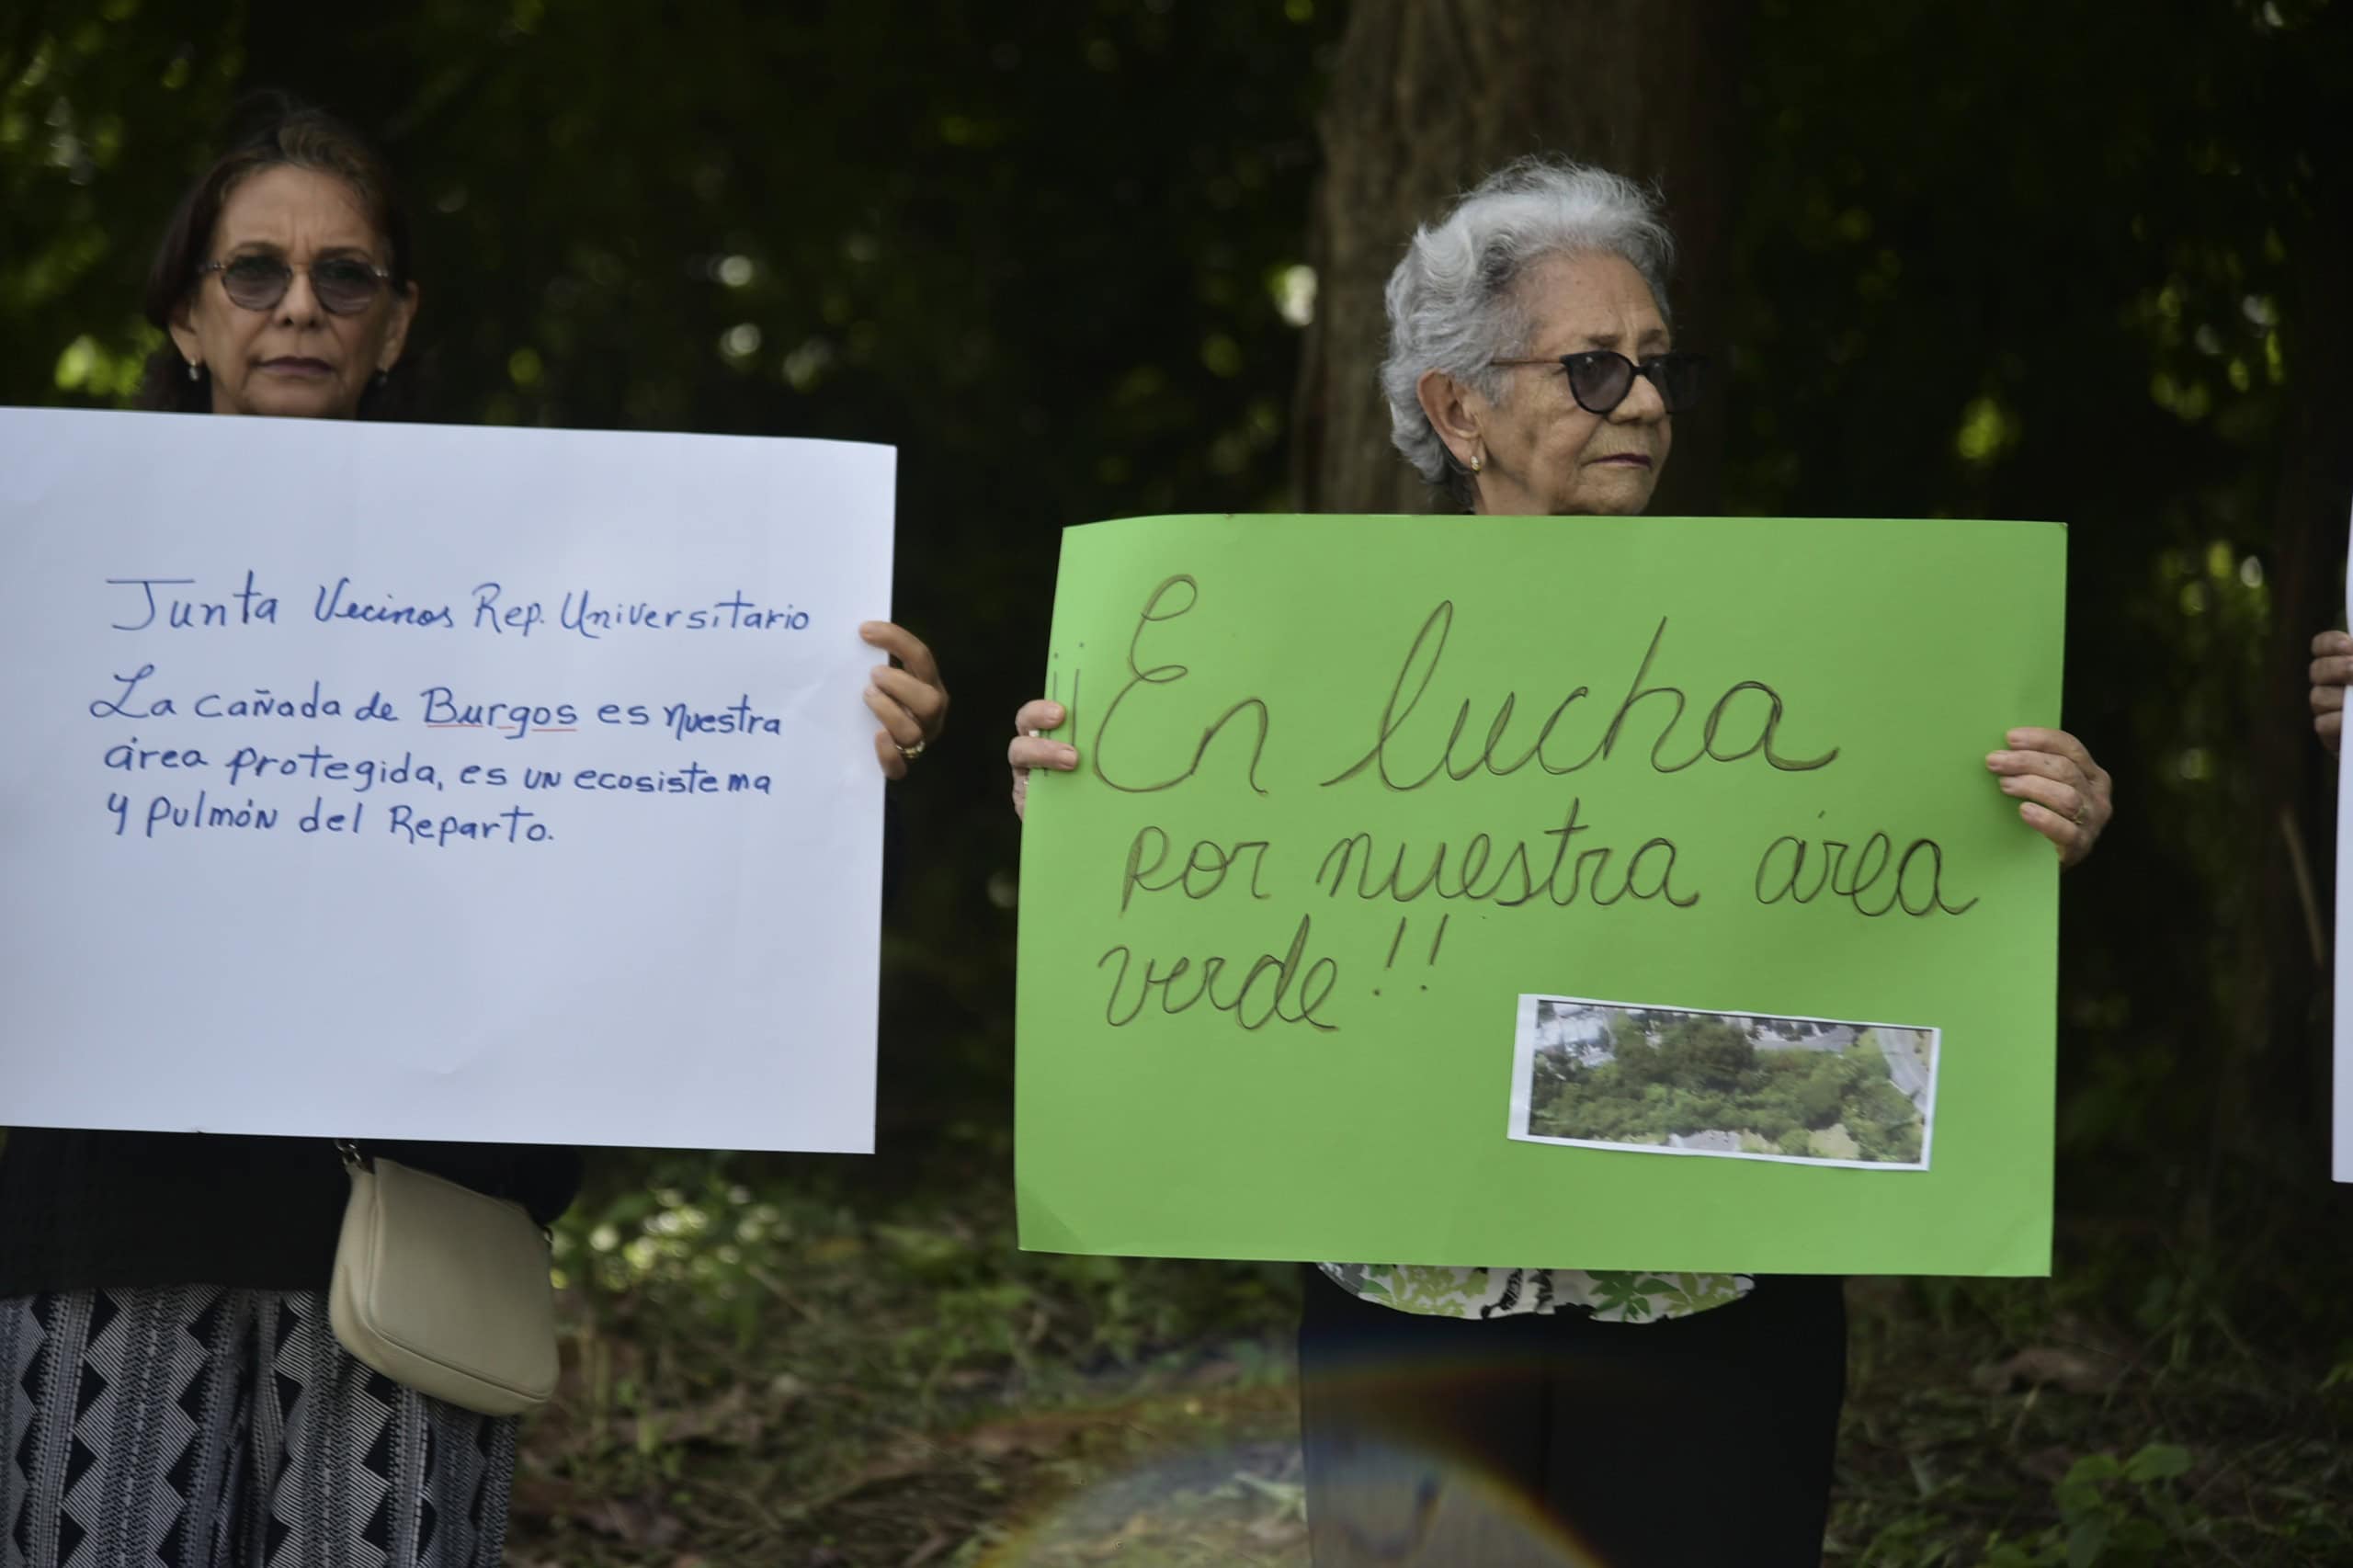 Junta Vecinos Rep. Universitario
La cañada de Burgos es nuestra
área protegida, es un ecosistema
y pulmón del Reparto.
¡¡En lucha
por nuestra área
verde!!